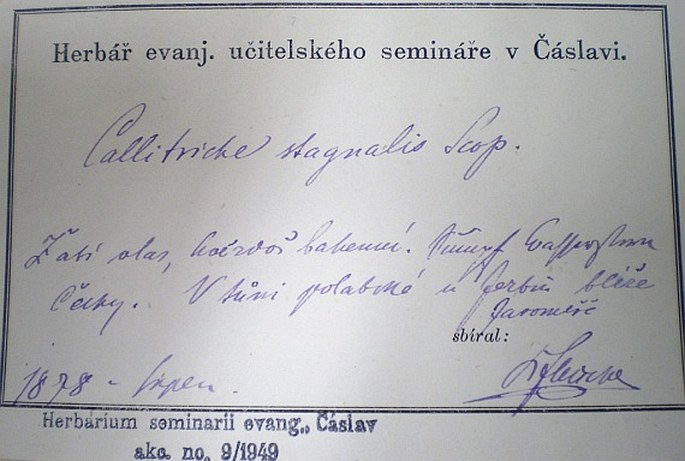 Herbář evanj. učitelského semináře v Čáslavi.
Callitriche stagnalis Scop.
Žabí vlas, hvězdoš bahenní.
Čechy. V tůni polabské u blíže
Jaroměře
sbíral:
1878 - srpen.
Herbárium seminarii evang., Čáslav
akc. no. 9/1949